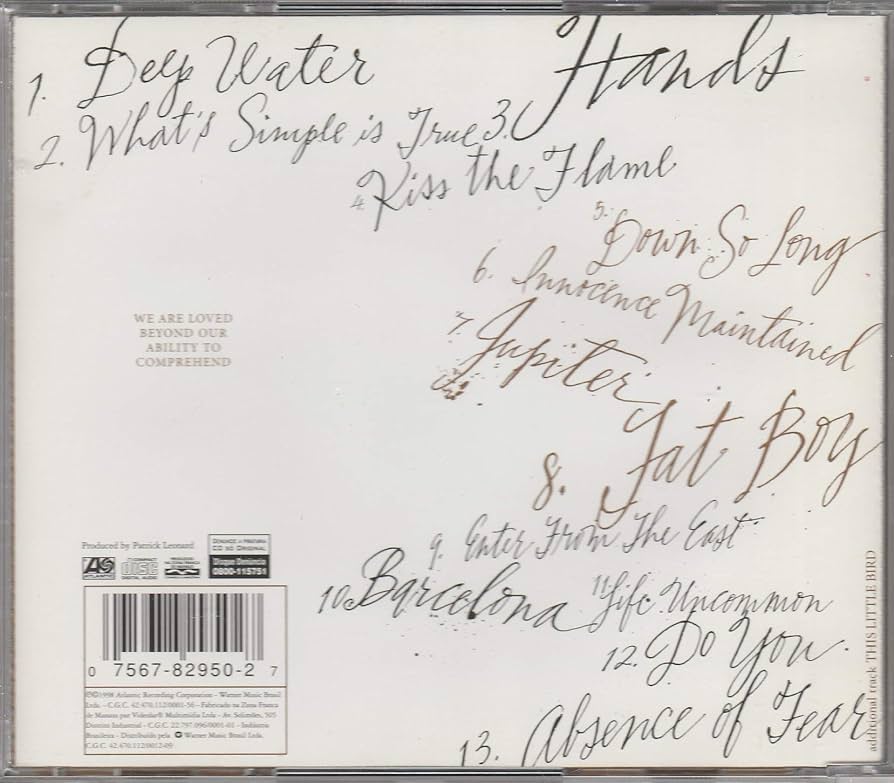 1. Deep Water
2. What's Simple is True
3. Hands
4. Kiss the Flame
5. Down So Long
6. Innocence Maintained
7. Jupiter
8. Fat Boy
9. Enter From The East
10. Barcelona
11. Life Uncommon
12. Do You
13. Absence of Fear
additional track THIS LITTLE BIRD
WE ARE LOVED
BEYOND OUR
ABILITY TO
COMPREHEND
Produced by Patrick Leonard
ATLANTIC
COMPACT
disc
DIGITAL AUDIO
DENUNCIE A PIRATARIA
CD SÓ ORIGINAL
Disque Denúncia
0800-115751
0 7567-82950-2 7
℗©1998 Atlantic Recording Corporation - Warner Music Brasil
Ltda. - C.G.C. 42.470.112/0001-56 - Fabricado na Zona Franca
de Manaus por Videolar® Multimídia Ltda - Av. Solimões, 505
Distrito Industrial - C.G.C. 22.797.096/0001-01 - Indústria
Brasileira - Distribuído pela Warner Music Brasil Ltda.
C.G.C. 42.470.112/0012-09